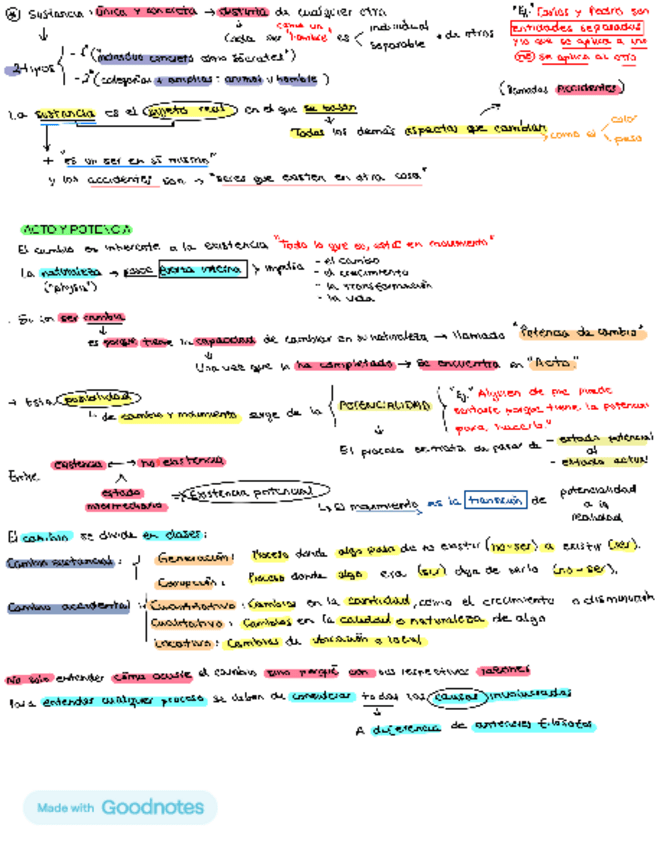 Sustancia: única y concreta → distinta de cualquier otra
"Ej." Carlos y Pedro son
entidades separadas
y lo que se aplica a uno
no se aplica al otro
como un
Cada ser "hombre" es individual
separable de otros
2 tipos
- 1° ("individuo concreto como Sócrates")
- 2° (categorías + amplias: animal u hombre)
(llamadas accidentes)
La sustancia es el sujeto real en el que se basan
Todos los demás aspectos que cambian como el color
peso
+ "es un ser en sí mismo"
y los accidentes son → "seres que existen en otra cosa"
ACTO Y POTENCIA
El cambio es inherente a la existencia "Todo lo que es, está en movimiento"
La naturaleza → posee fuerza interna > impulsa - el cambio
("physis") - el crecimiento
- la transformación
- la vida
. Si un ser cambia
es porque tiene la capacidad de cambiar en su naturaleza → llamado "Potencia de cambio"
Una vez que se ha completado → se encuentra en "Acto"
→ Esta posibilidad
de cambio y movimiento surge de la POTENCIALIDAD
"Ej." Alguien de pie puede
sentarse porque tiene la potencia
para hacerlo."
El proceso se trata de pasar de - estado potencial
al
- estado actual
Entre existencia ↔ no existencia
estado
intermediario → Existencia potencial
El movimiento es la transición de potencialidad
a la
realidad
El cambio se divide en clases:
Cambio sustancial: Generación: Proceso donde algo pasa de no existir (no-ser) a existir (ser).
Corrupción: Proceso donde algo era (ser) deja de serlo (no-ser).
Cambio accidental: Cuantitativo: Cambios en la cantidad, como el crecimiento o disminución
Cualitativo: Cambios en la calidad o naturaleza de algo
Locativo: Cambios de ubicación o local
No solo entender cómo ocurre el cambio sino porqué con sus respectivas razones
Para entender cualquier proceso se deben de considerar todas las causas involucradas
A diferencia de anteriores filósofos
Made with Goodnotes